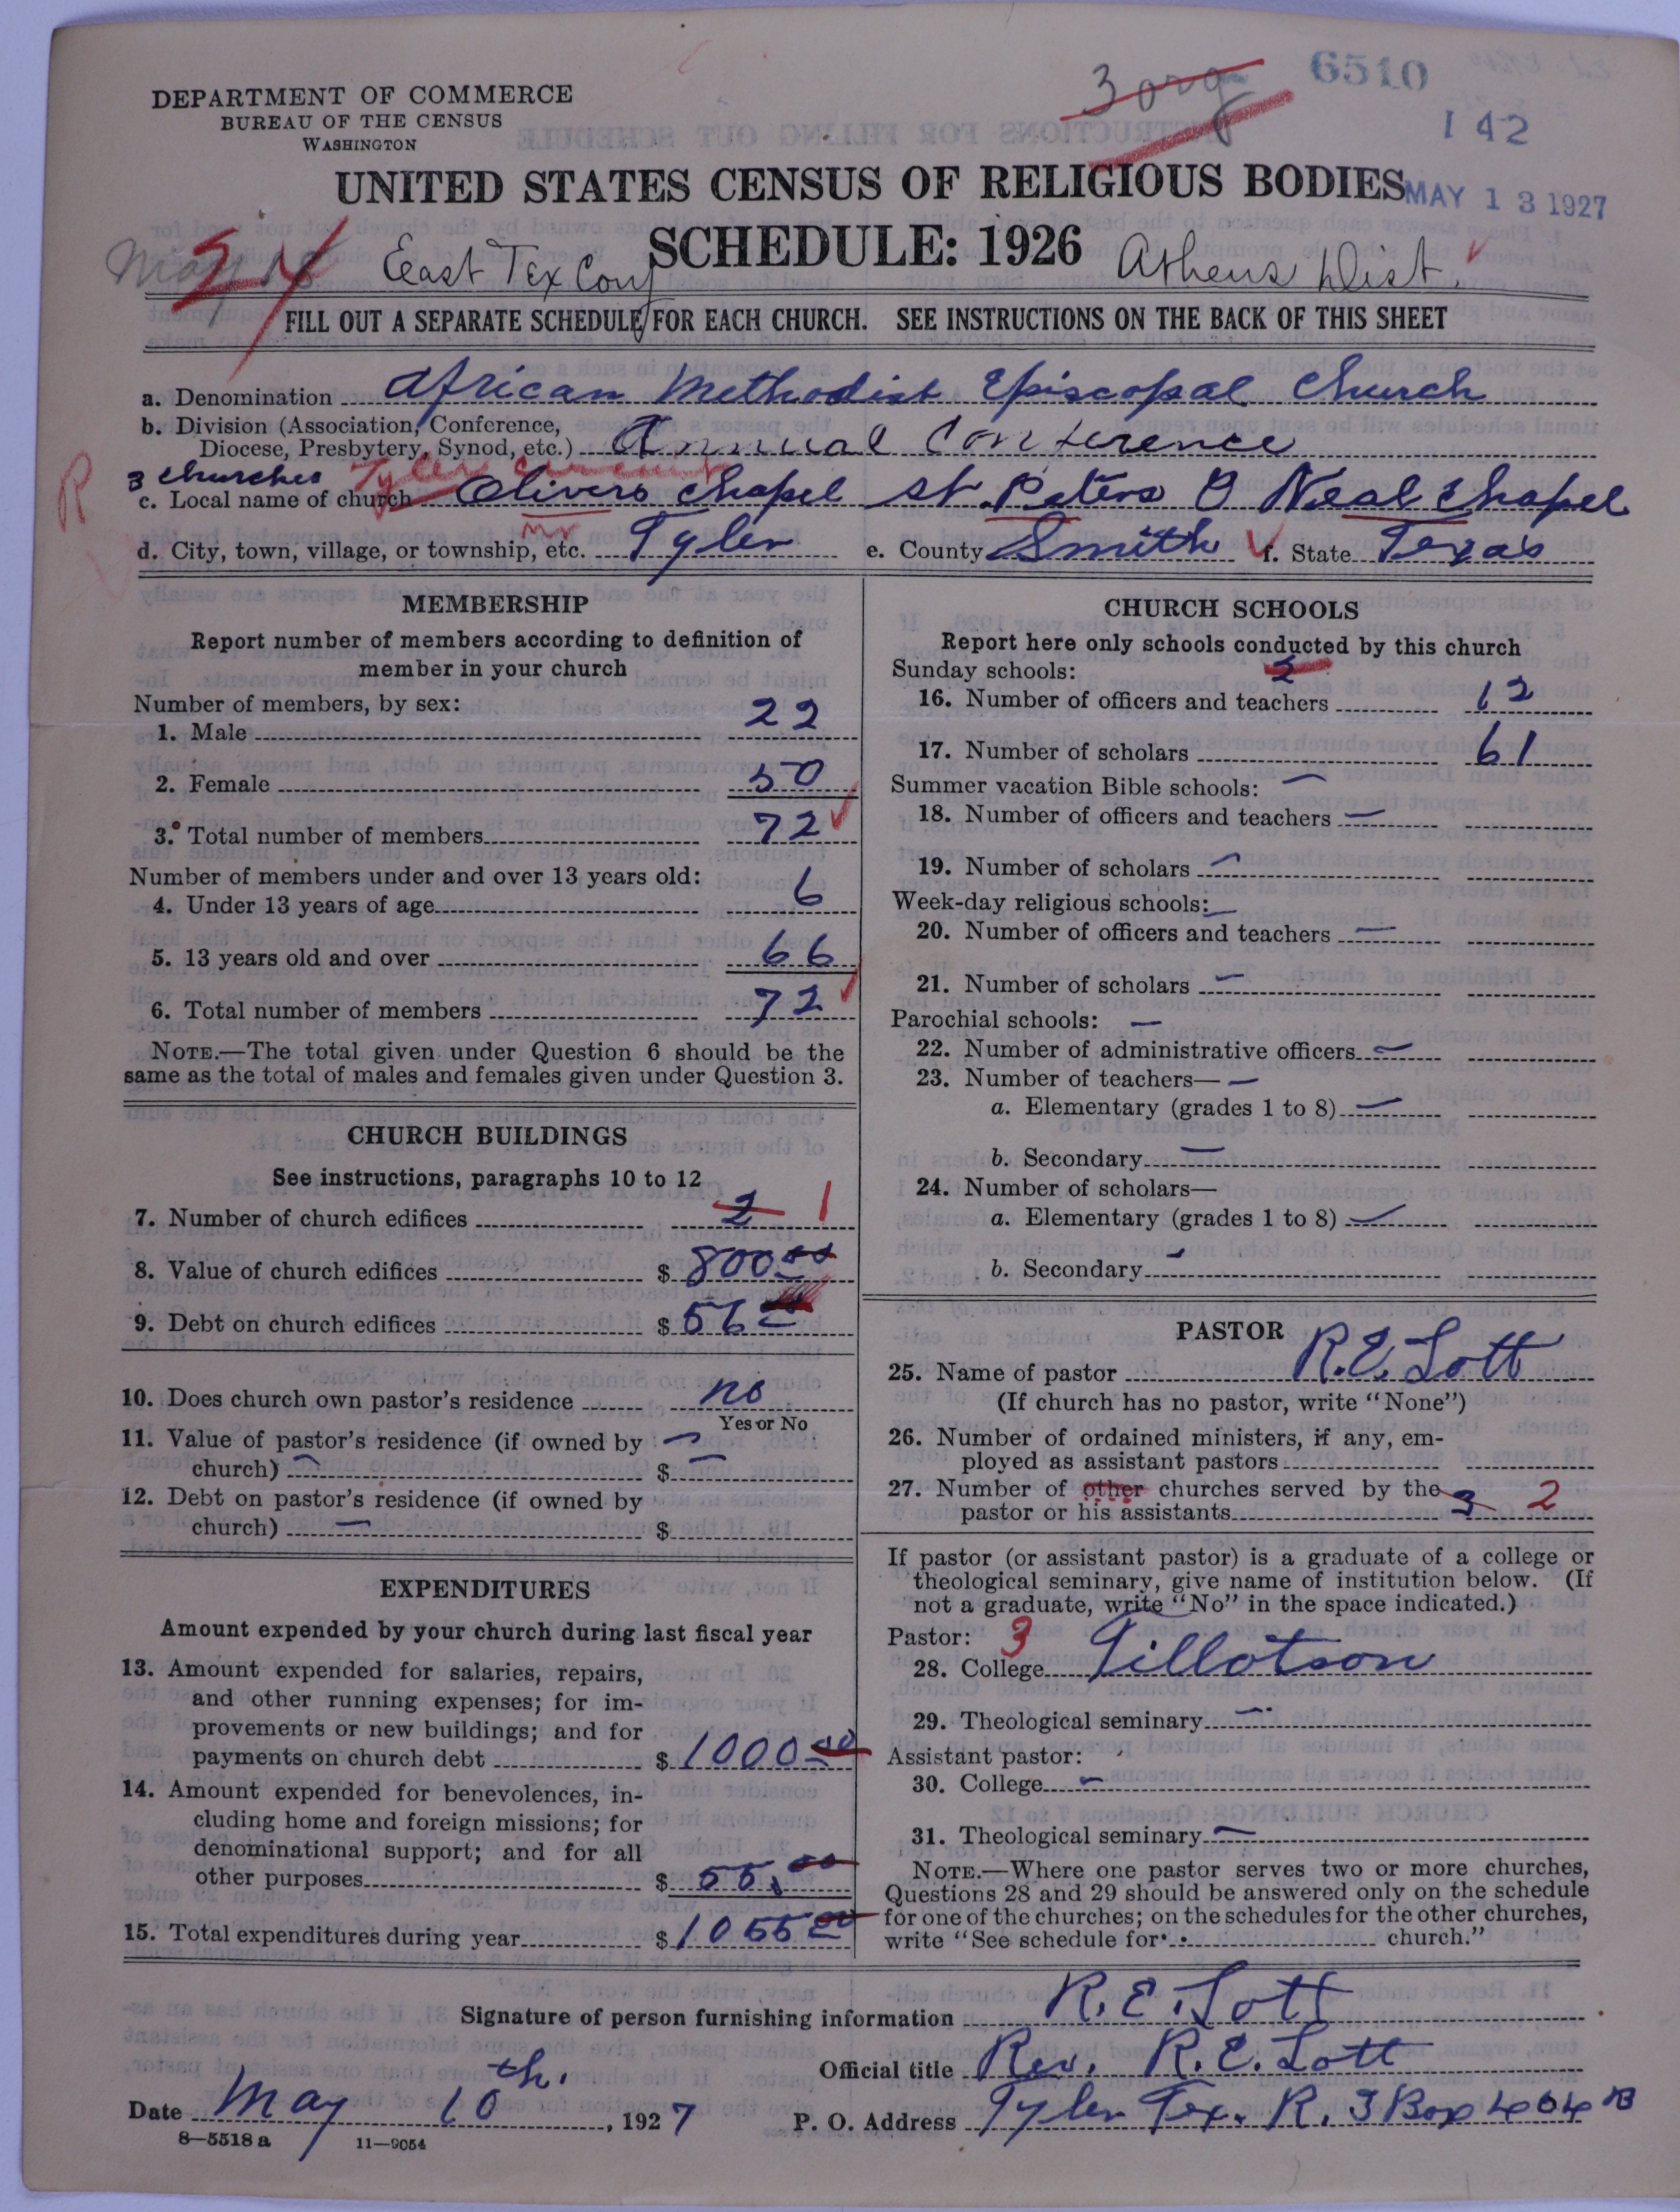 3 org
6510
142
DEPARTMENT OF COMMERCE
BUREAU OF THE CENSUS
WASHINGTON
UNITED STATES CENSUS OF RELIGIOUS BODIES
MAY 13 1927
SCHEDULE: 1926
May 18
24
East Tex Conf
Athens Dist.
FILL OUT A SEPARATE SCHEDULE FOR EACH CHURCH. SEE INSTRUCTIONS ON THE BACK OF THIS SHEET
a. Denomination African Methodist Episcopal Church
b. Division (Association, Conference,
Diocese, Presbytery, Synod, etc.) Annual Conference
3 churches Tyler Circuit
R
c. Local name of church Olivers Chapel St. Peters O Neal Chapel
d. City, town, village, or township, etc. nr Tyler e. County Smith f. State Texas
MEMBERSHIP
Report number of members according to definition of
member in your church
Number of members, by sex:
1. Male 22
2. Female 50
3. Total number of members 72
Number of members under and over 13 years old:
4. Under 13 years of age 6
5. 13 years old and over 66
6. Total number of members 72
NOTE.—The total given under Question 6 should be the
same as the total of males and females given under Question 3.
CHURCH BUILDINGS
See instructions, paragraphs 10 to 12
7. Number of church edifices 2 1
8. Value of church edifices $ 800.00
9. Debt on church edifices $ 56
10. Does church own pastor's residence no
Yes or No
11. Value of pastor's residence (if owned by —
church) — $ —
12. Debt on pastor's residence (if owned by
church) — $
EXPENDITURES
Amount expended by your church during last fiscal year
13. Amount expended for salaries, repairs,
and other running expenses; for im-
provements or new buildings; and for
payments on church debt $ 1000.00
14. Amount expended for benevolences, in-
cluding home and foreign missions; for
denominational support; and for all
other purposes $ 55.00
15. Total expenditures during year $ 1055.00
CHURCH SCHOOLS
Report here only schools conducted by this church
Sunday schools: 2
16. Number of officers and teachers 12
17. Number of scholars 61
Summer vacation Bible schools: —
18. Number of officers and teachers —
19. Number of scholars —
Week-day religious schools: —
20. Number of officers and teachers —
21. Number of scholars —
Parochial schools: —
22. Number of administrative officers —
23. Number of teachers— —
a. Elementary (grades 1 to 8) —
b. Secondary —
24. Number of scholars—
a. Elementary (grades 1 to 8) —
b. Secondary —
PASTOR
25. Name of pastor R.E. Lott
(If church has no pastor, write "None")
26. Number of ordained ministers, if any, em-
ployed as assistant pastors
27. Number of other churches served by the
pastor or his assistants 3 2
If pastor (or assistant pastor) is a graduate of a college or
theological seminary, give name of institution below. (If
not a graduate, write "No" in the space indicated.)
Pastor: 3
28. College Tillotson
29. Theological seminary —
Assistant pastor:
30. College —
31. Theological seminary —
NOTE.—Where one pastor serves two or more churches,
Questions 28 and 29 should be answered only on the schedule
for one of the churches; on the schedules for the other churches,
write "See schedule for church."
Signature of person furnishing information R.E. Lott
Official title Rev. R.E. Lott
Date May 10th., 1927 P. O. Address Tyler Tex. R. 3 Box 404 B
8—5518 a 11—9054